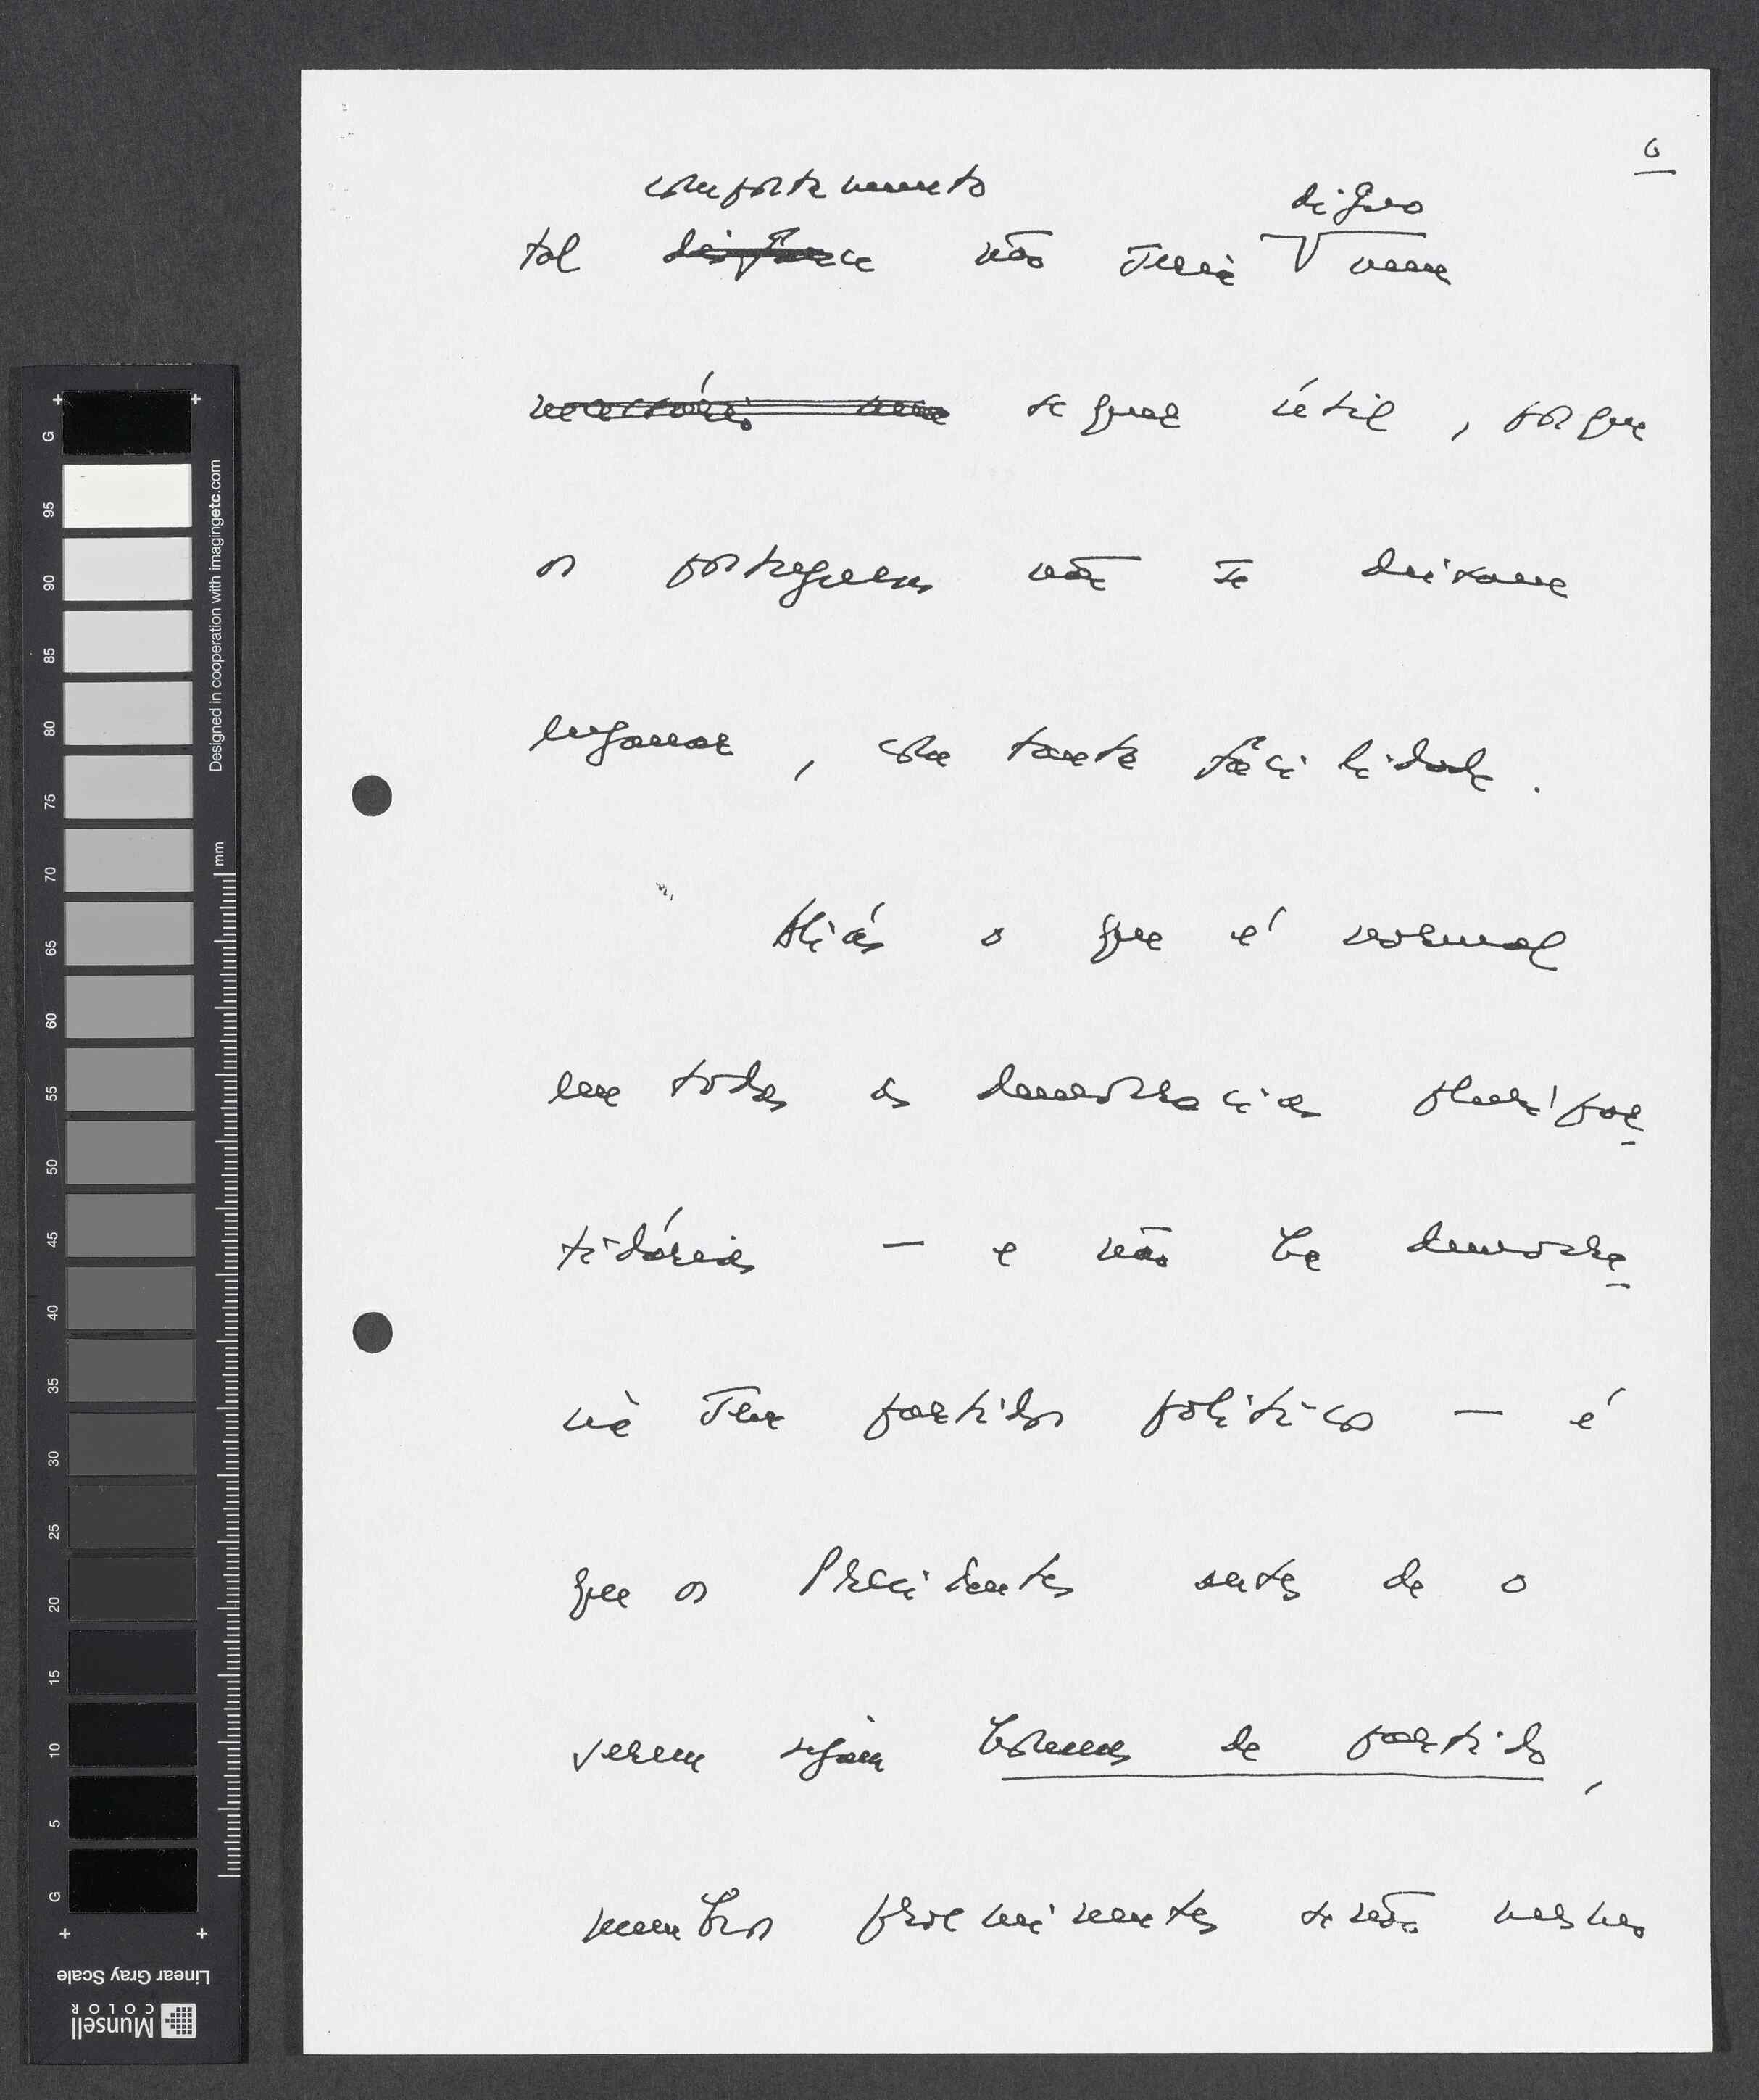 6
comportamento digno
tal disfarce não seria nem
necessário nem sequer útil, porque
os portugueses não se deixam
enganar, com tanta facilidade.
Aliás o que é normal
em todas as democracias pluripar
tidárias — e não há democra
cia sem partidos políticos — é
que os Presidentes antes de o
serem sejam homens de partido,
membros proeminentes senão mesmo
G
95
90
85
80
75
70
65
60
55
50
45
40
35
30
25
20
15
10
5
G
Designed in cooperation with imagingetc.com
mm
Linear Gray Scale
Munsell
COLOR